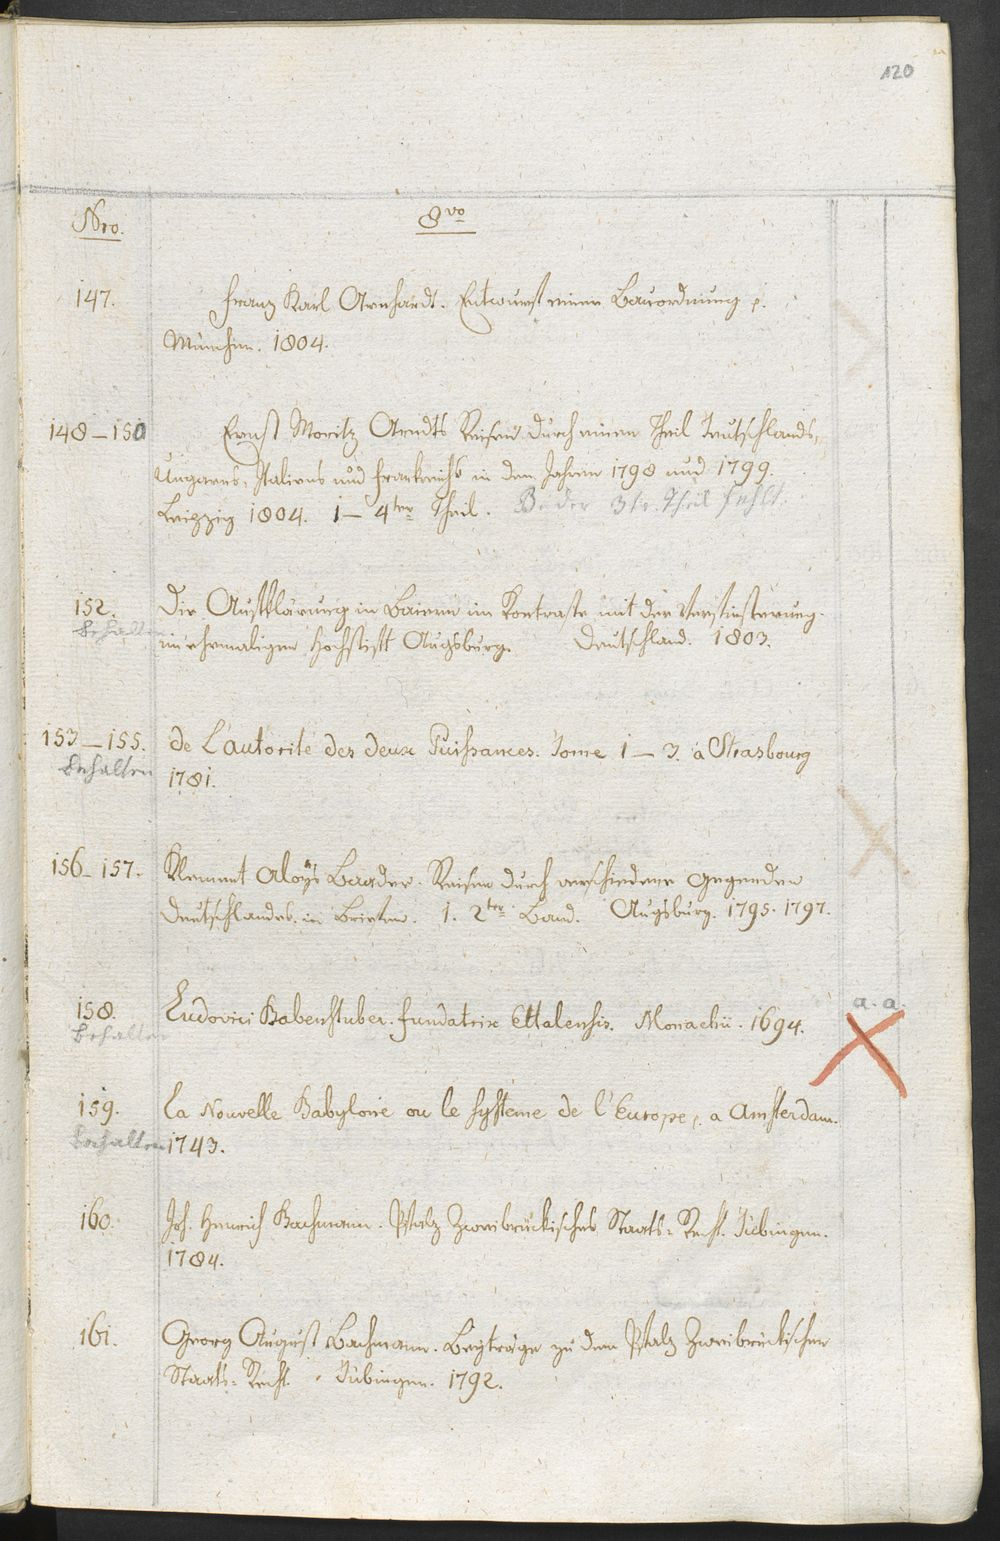 120
Nro. 8vo
147. Franz Karl Arnhardt. Entwurf einer Bauordnung p.
München. 1804.
148–150 Ernst Moritz Arndts Reisen durch einen Theil Teutschlands,
Ungarns, Italiens und Frankreichs in den Jahren 1798 und 1799.
Leipzig 1804. 1–4ter Theil. der 3te Theil fehlt.
152. Die Aufklärung in Baiern im Kontraste mit der Verfinsterung
behalten im ehemaligen Hochstift Augsburg. Deutschland. 1803.
153–155. de L'autorité des deux Puissances. Tome 1–3. à Strasbourg
behalten 1781.
156–157. Klement Aloys Baader. Reisen durch verschiedene Gegenden
Deutschlandes in Briefen. 1. 2ter Band. Augsburg. 1795. 1797.
158. Ludovici Babenstuber. fundatrix Ettalensis. Monachii. 1694. a. a.
behalten
159. La Nouvelle Babylone ou le systeme de l'Europe p. a Amsterdam.
behalten 1743.
160. Joh. Heinrich Bachmann. Pfalz Zweibrückisches Staats-Recht. Tübingen.
1784.
161. Georg August Bachmann. Beyträge zu dem Pfalz Zweibrückischen
Staats-Recht. Tübingen. 1792.